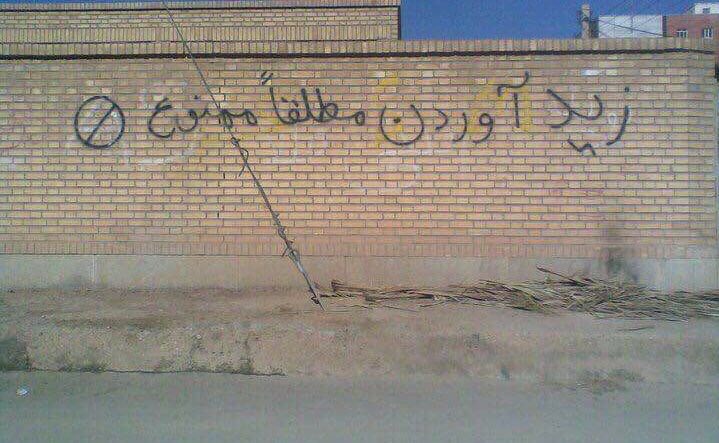 زید آوردن مطلقاً ممنوع